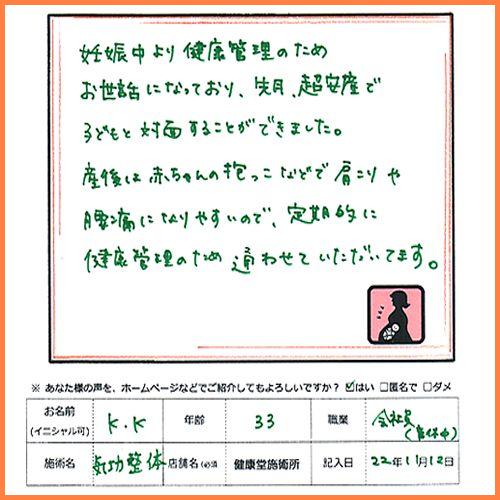 妊娠中より健康管理のため
お世話になっており、先月、超安産で
子どもと対面することができました。
産後は赤ちゃんの抱っこなどで肩こりや
腰痛になりやすいので、定期的に
健康管理のため通わせていただいてます。
※ あなた様の声を、ホームページなどでご紹介してもよろしいですか？ ☑はい □匿名で □ダメ
お名前 (イニシャル可) K.K 年齢 33 職業 会社員 (育休中)
施術名 気功整体 店舗名(必須 健康堂施術所 記入日 22年11月12日